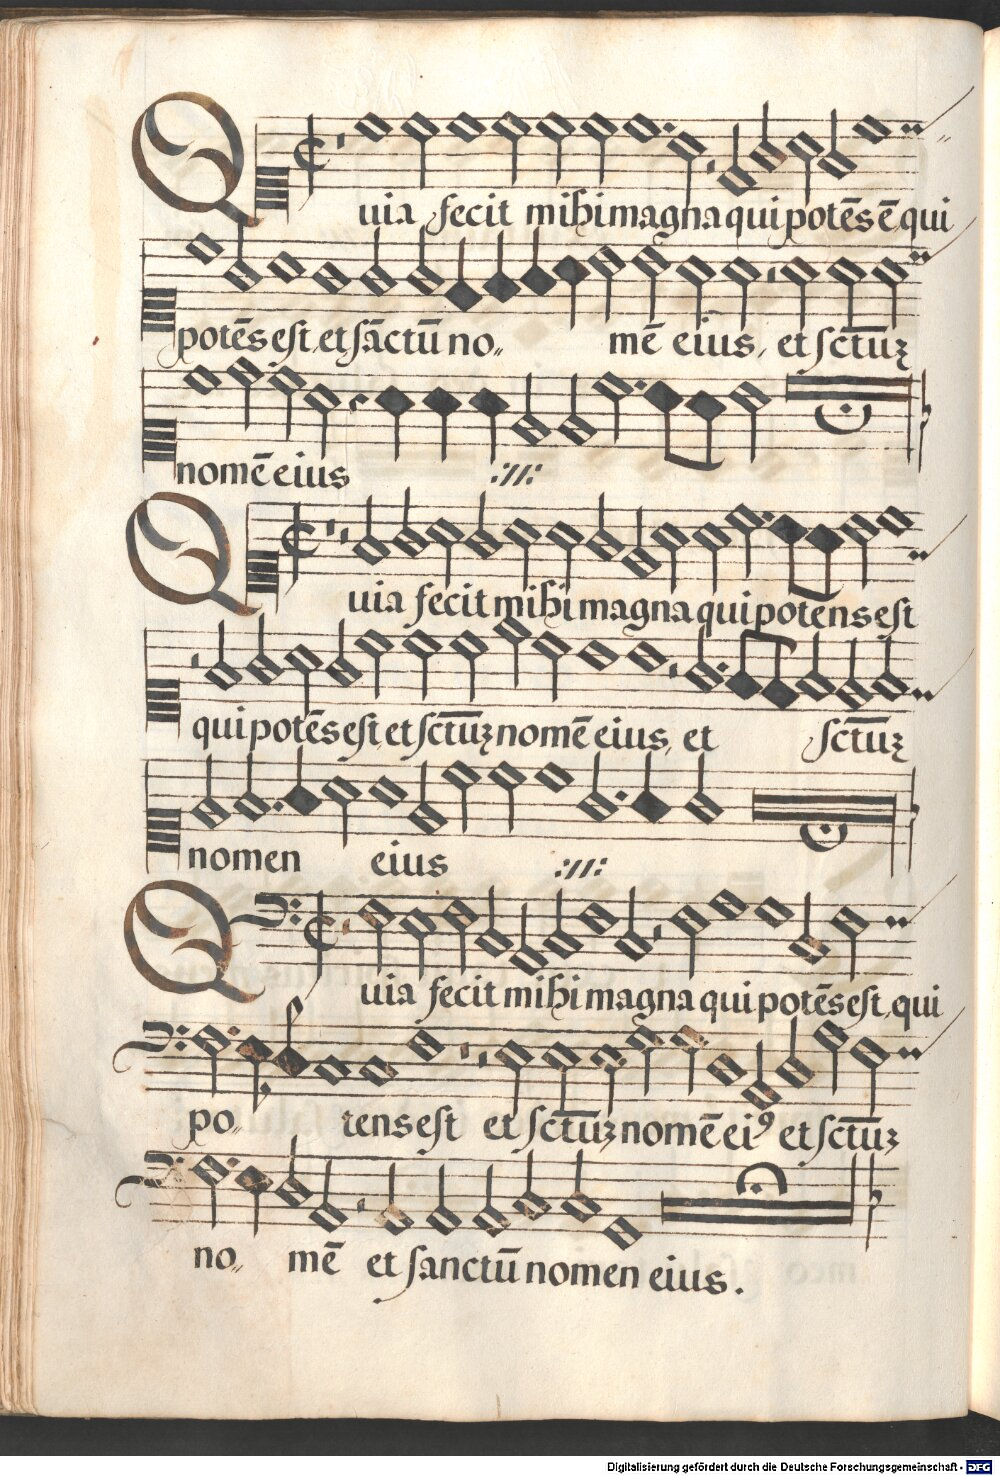 Quia fecit mihi magna qui potēs ē qui
potēs est, et sāctū no„ mē eius, et sctūȝ
nomē eius ://:
Quia fecit mihi magna qui potens est
qui potēs est, et sctūȝ nomē eius, et sctūȝ
nomen eius ://:
Quia fecit mihi magna qui potēs est, qui
po„ tens est et sctūȝ nomē eiꝰ et sctūȝ
no„ mē et sanctū nomen eius.
Digitalisierung gefördert durch die Deutsche Forschungsgemeinschaft - DFG